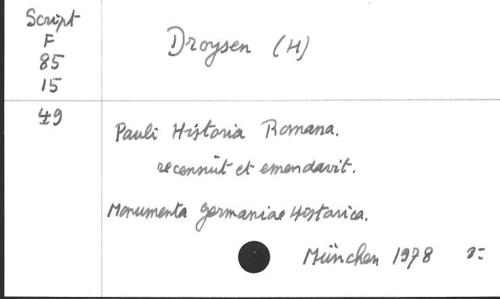 Script
F
85
15
49
Droysen (H)
Pauli Historia Romana.
recensuit et emendavit.
Monumenta Germaniae Historica.
München 1978